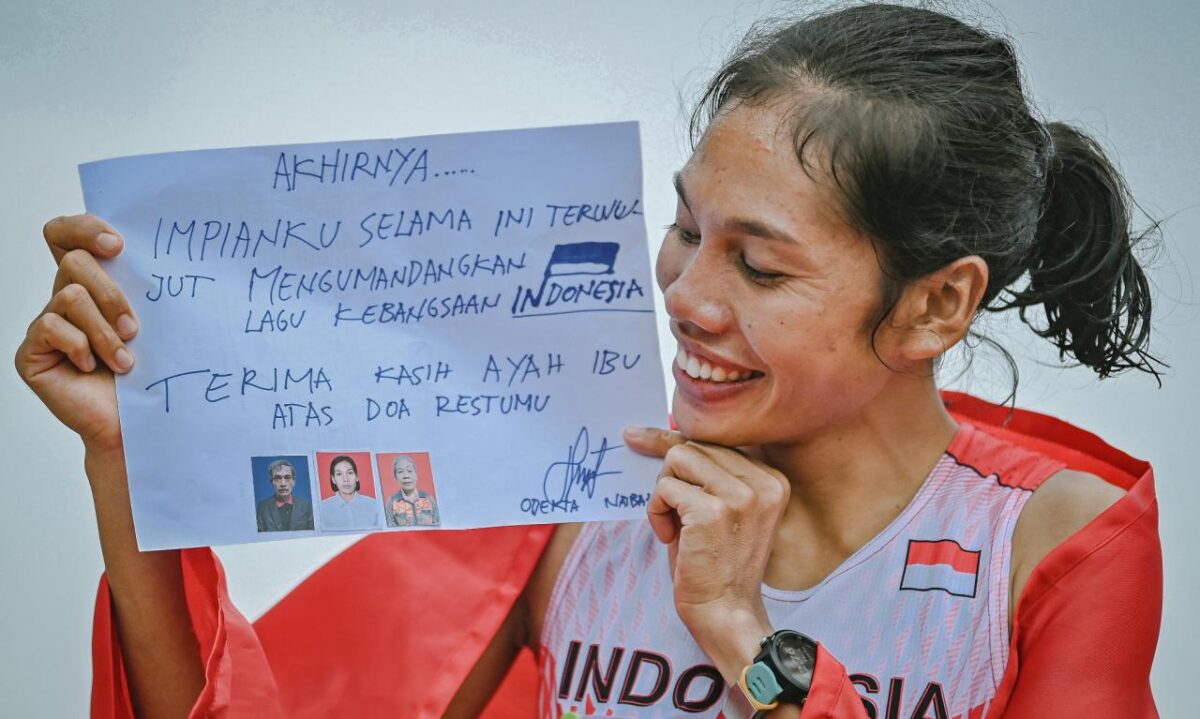 AKHIRNYA......
IMPIANKU SELAMA INI TERWU-
JUT MENGUMANDANGKAN
LAGU KEBANGSAAN INDONESIA
TERIMA KASIH AYAH IBU
ATAS DOA RESTUMU
ODEKTA
INDO SIA